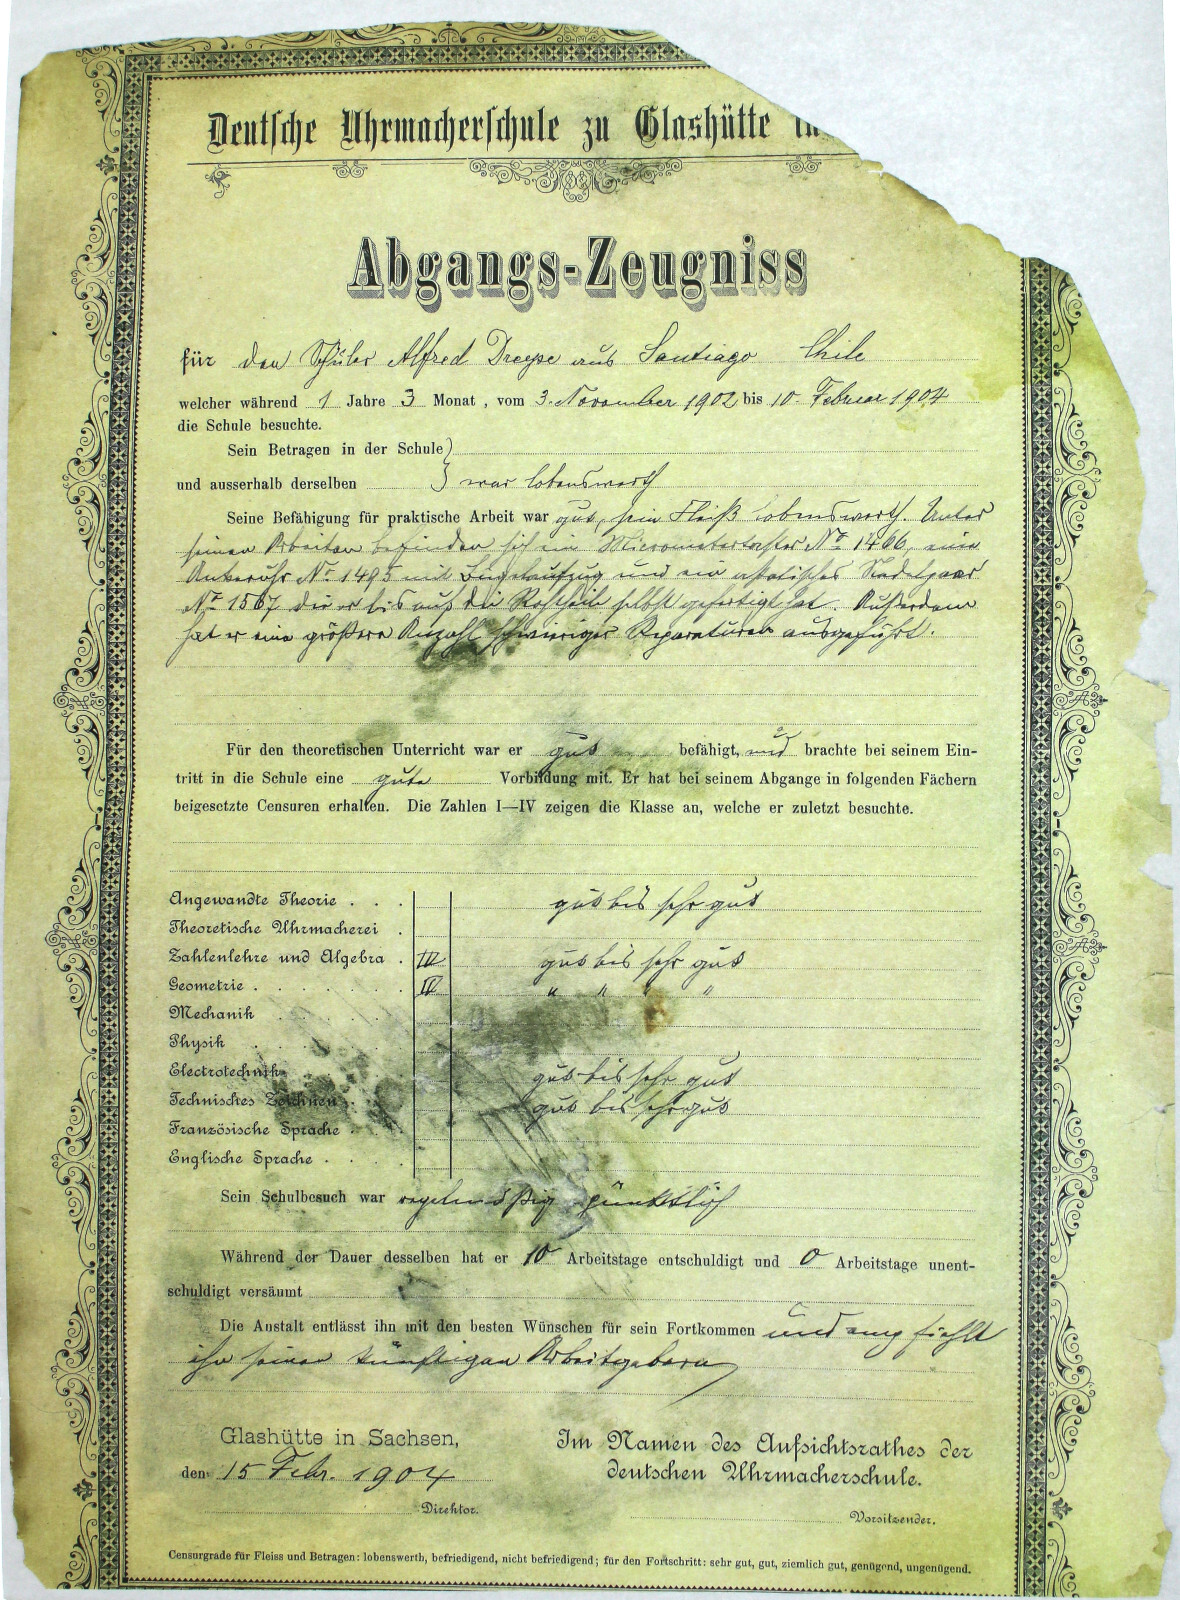 Deutsche Uhrmacherschule zu Glashütte
Abgangs-Zeugniss
für den Schüler Alfred Dreyse aus Santiago Chile
welcher während 1 Jahre 3 Monat, vom 3. November 1902 bis 10 Februar 1904
die Schule besuchte.
Sein Betragen in der Schule
und ausserhalb derselben war lobenswerth
Seine Befähigung für praktische Arbeit war gut, sein Fleiß lobenswerth. Unter
seinen Arbeiten befinden sich ein Micrometertaster No 1466, eine
Ankeruhr No 1495 mit Bügelaufzug und ein astatisches Nadelpaar
No 1567 die er bis auf die Rohtheile selbst gefertigt hat. Außerdem
hat er eine größere Anzahl schwieriger Reparaturen ausgeführt.
Für den theoretischen Unterricht war er gut befähigt, und brachte bei seinem Ein-
tritt in die Schule eine gute Vorbildung mit. Er hat bei seinem Abgange in folgenden Fächern
beigesetzte Censuren erhalten. Die Zahlen I—IV zeigen die Klasse an, welche er zuletzt besuchte.
Angewandte Theorie . . . gut bis sehr gut
Theoretische Uhrmacherei .
Zahlenlehre und Algebra . IV gut bis sehr gut
Geometrie . . . . . . IV " " " "
Mechanik . . . . .
Physik . . . . . .
Electrotechnik gut bis sehr gut
Technisches Zeichnen . . gut bis sehr gut
Französische Sprache . . .
Englische Sprache . . .
Sein Schulbesuch war regelmäßig pünktlich
Während der Dauer desselben hat er 10 Arbeitstage entschuldigt und 0 Arbeitstage unent-
schuldigt versäumt
Die Anstalt entlässt ihn mit den besten Wünschen für sein Fortkommen und empfiehlt
ihn seinen künftigen Arbeitgebern
Glashütte in Sachsen,
den 15 Febr. 1904
Direktor.
Im Namen des Aufsichtsrathes der
deutschen Uhrmacherschule.
Vorsitzender.
Censurgrade für Fleiss und Betragen: lobenswerth, befriedigend, nicht befriedigend; für den Fortschritt: sehr gut, gut, ziemlich gut, genügend, ungenügend.